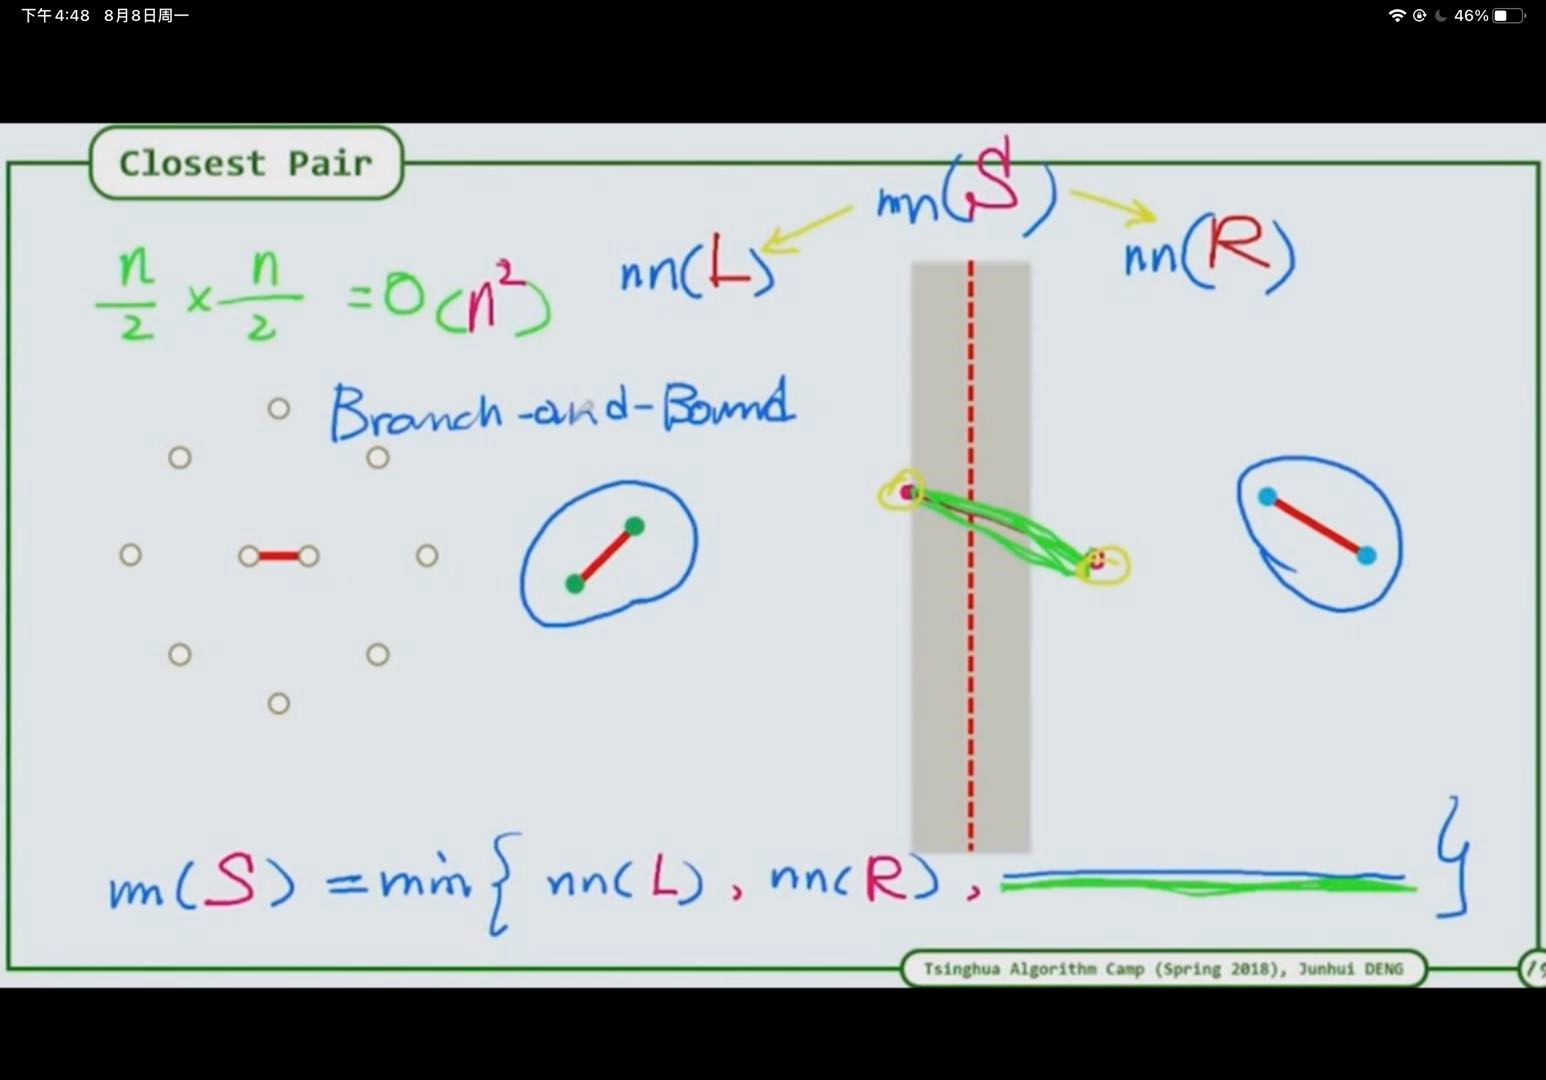 下午4:48 8月8日周一
46%
Closest Pair
nn(S)
nn(L)
nn(R)
n/2 × n/2 = O(n²)
Branch-and-Bound
nn(S) = min{ nn(L), nn(R), ______ }
Tsinghua Algorithm Camp (Spring 2018), Junhui DENG